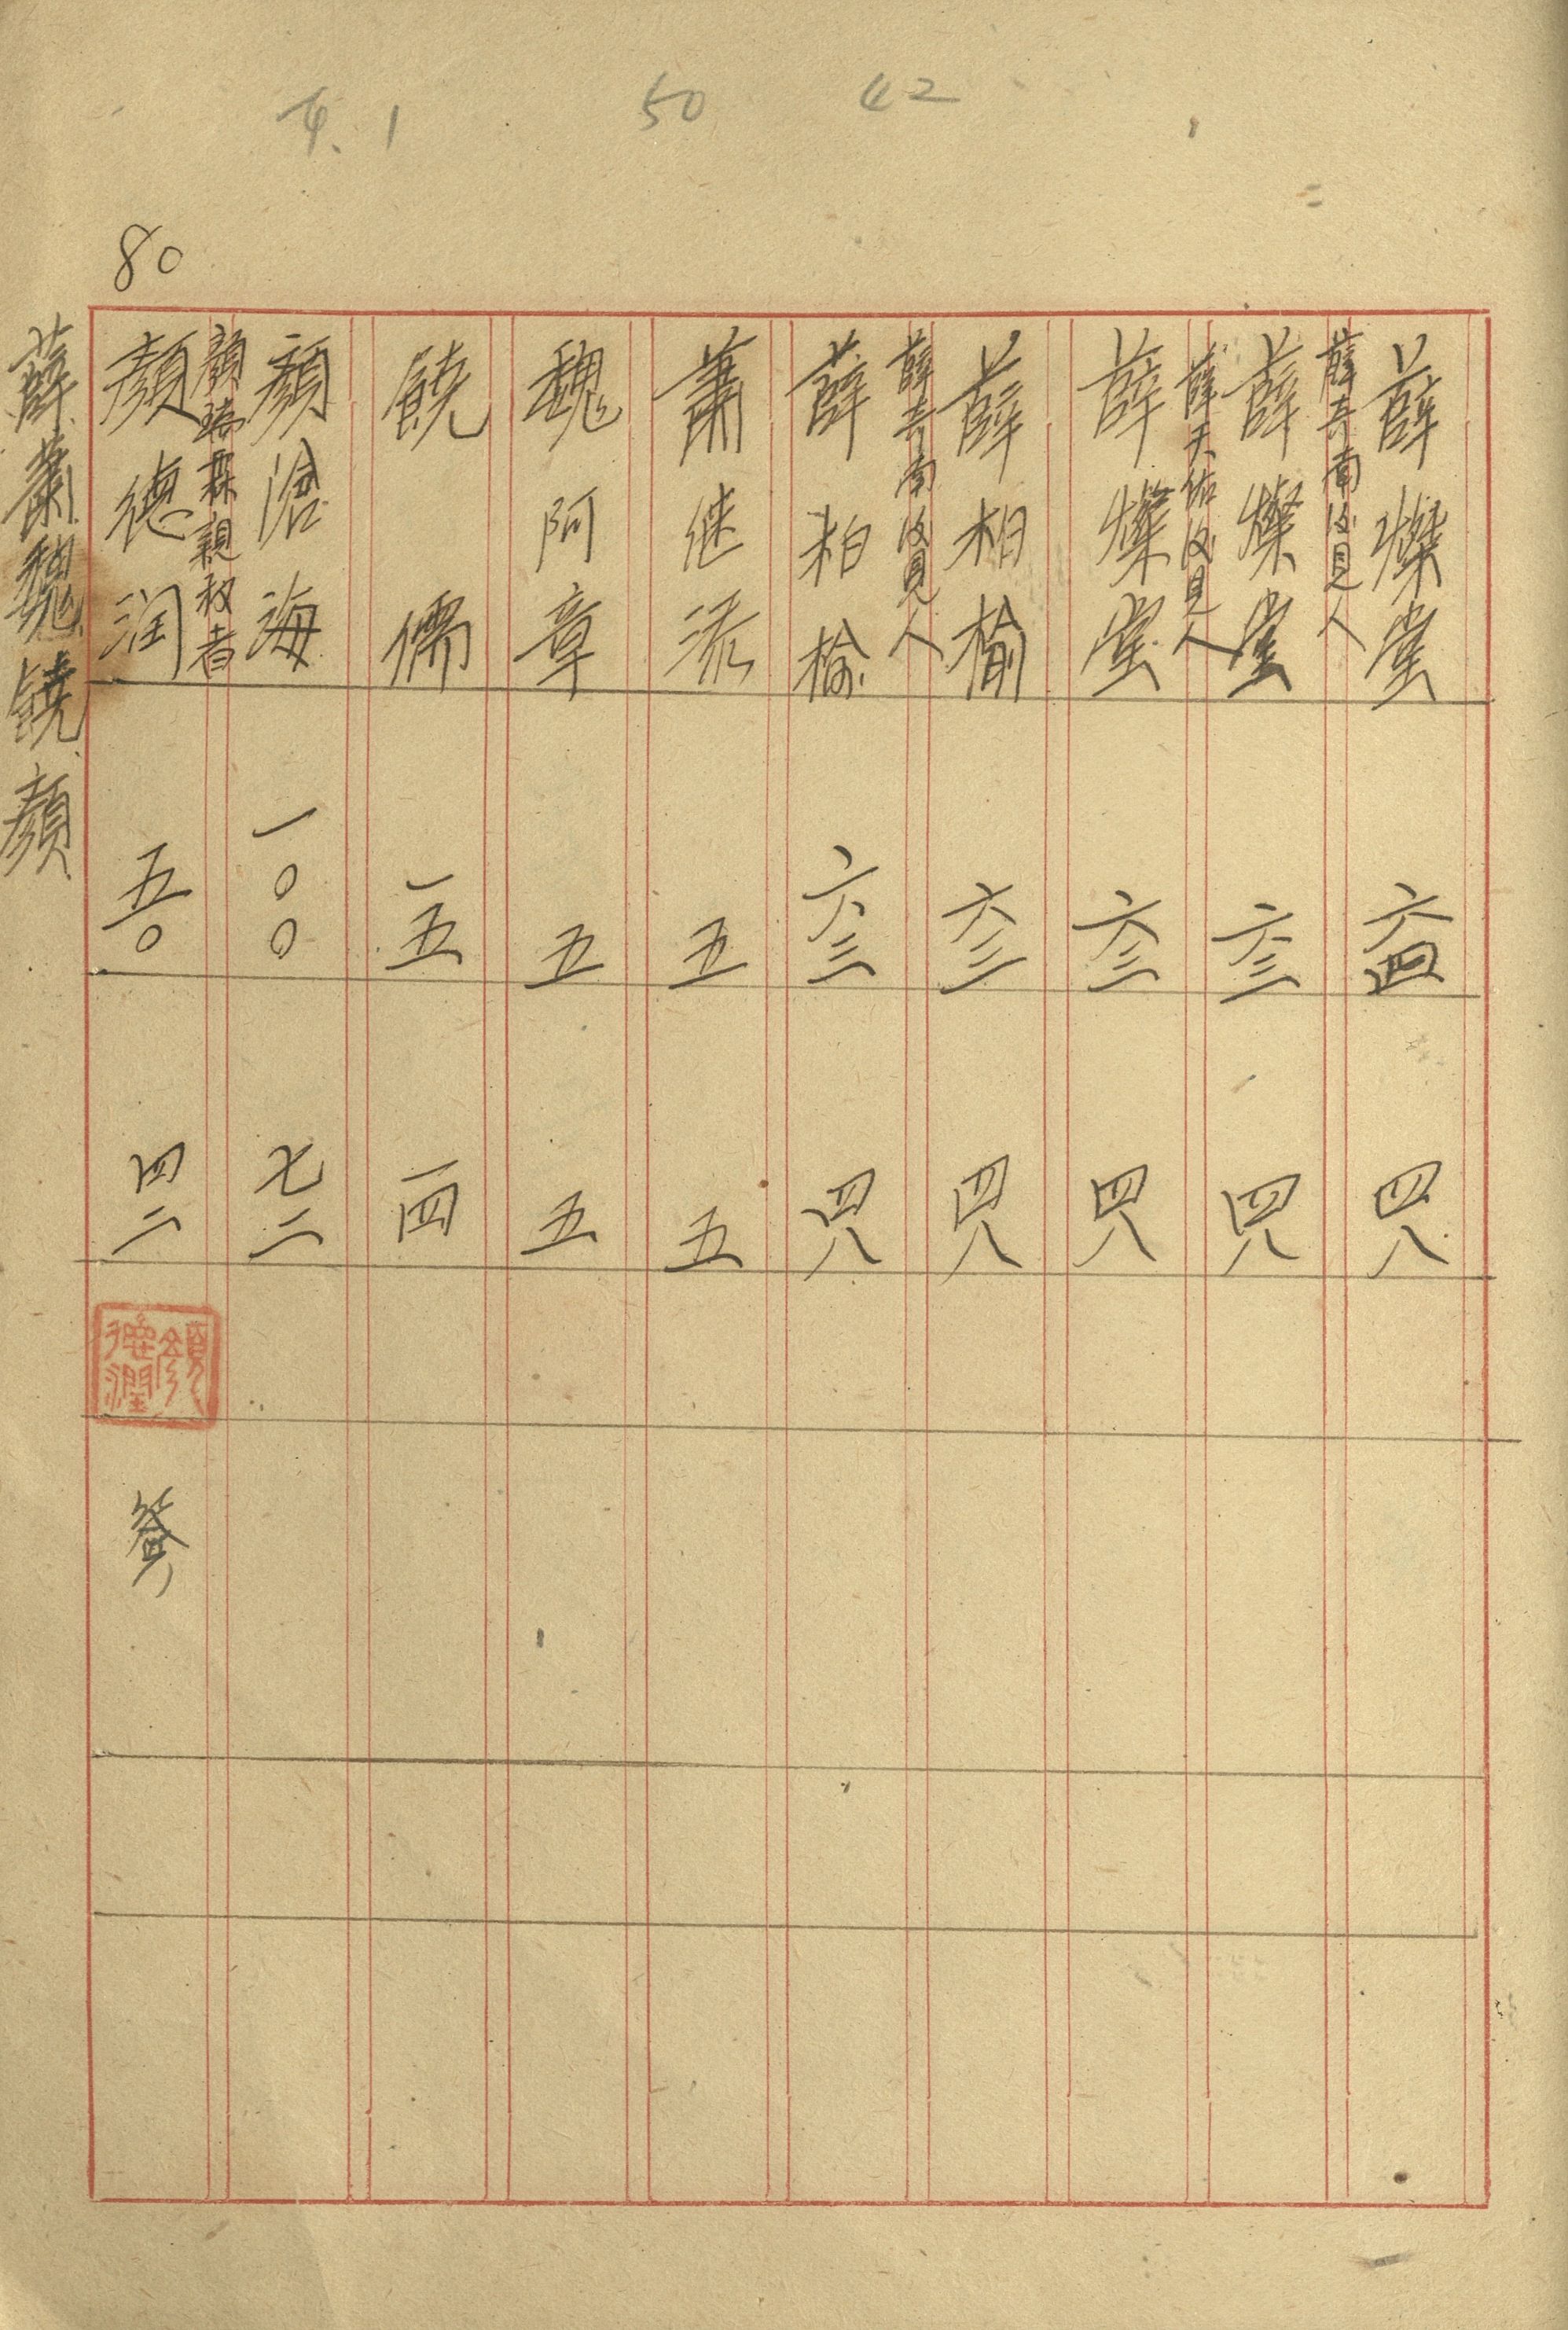 50 42
80
薛燦堂 六四 四八
薛南後見人
薛燦堂 六三 四八
薛天佑後見人
薛燦堂 六三 四八
薛柏榆 六三 四八
薛南後見人
薛柏榆 六三 四八
蕭继添 五 五
魏阿章 五 五
饒儒 一五 一四
顏滄海 一〇〇 七二
顏瑞霖親权者
顏德润 五〇 四二
顏德潤
薛蕭魏饒顏